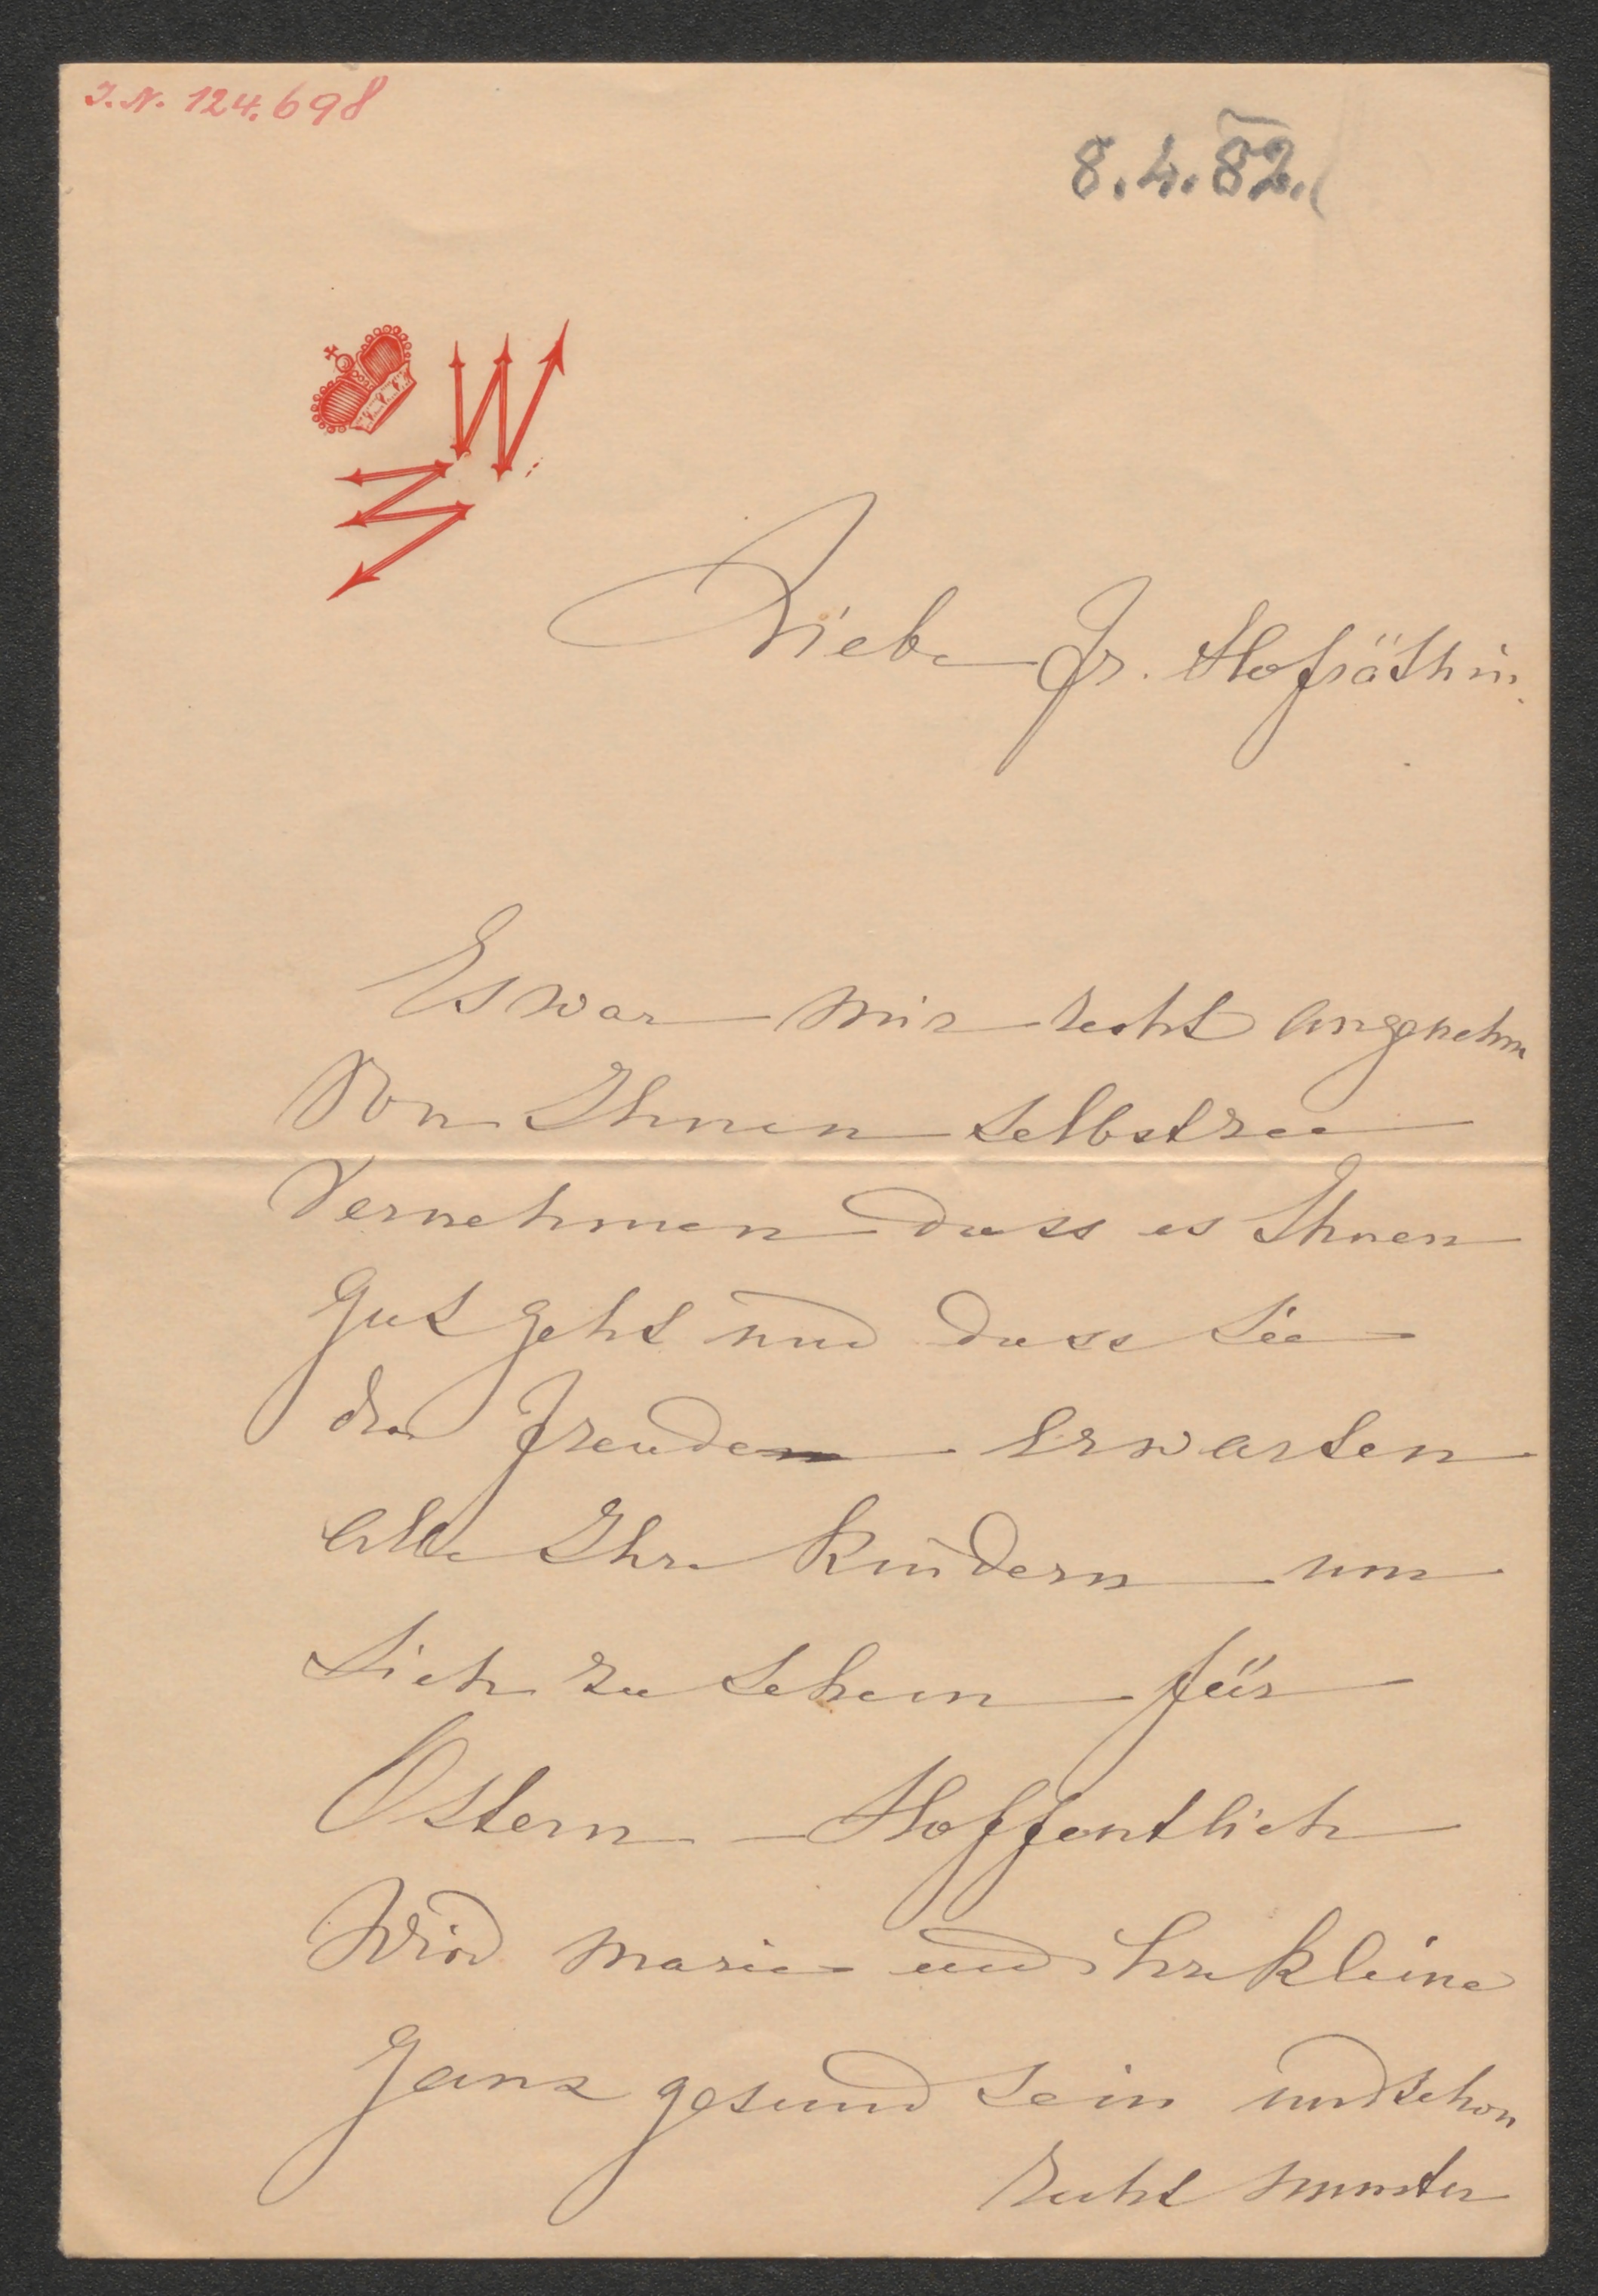 I.N. 124.698
8.4.82.
W
W
Liebe Fr. Hofräthin
Es war mir recht angenehm
Von Ihnen selbst zu
Vernehmen dass es Ihnen
gut geht und dass Sie
die Freude erwarten
Alle Ihre Kindern um
Sich zu sehen für
Ostern – Hoffentlich
Wird Marie und Ihre kleine
ganz gesund sein und schon
recht munter